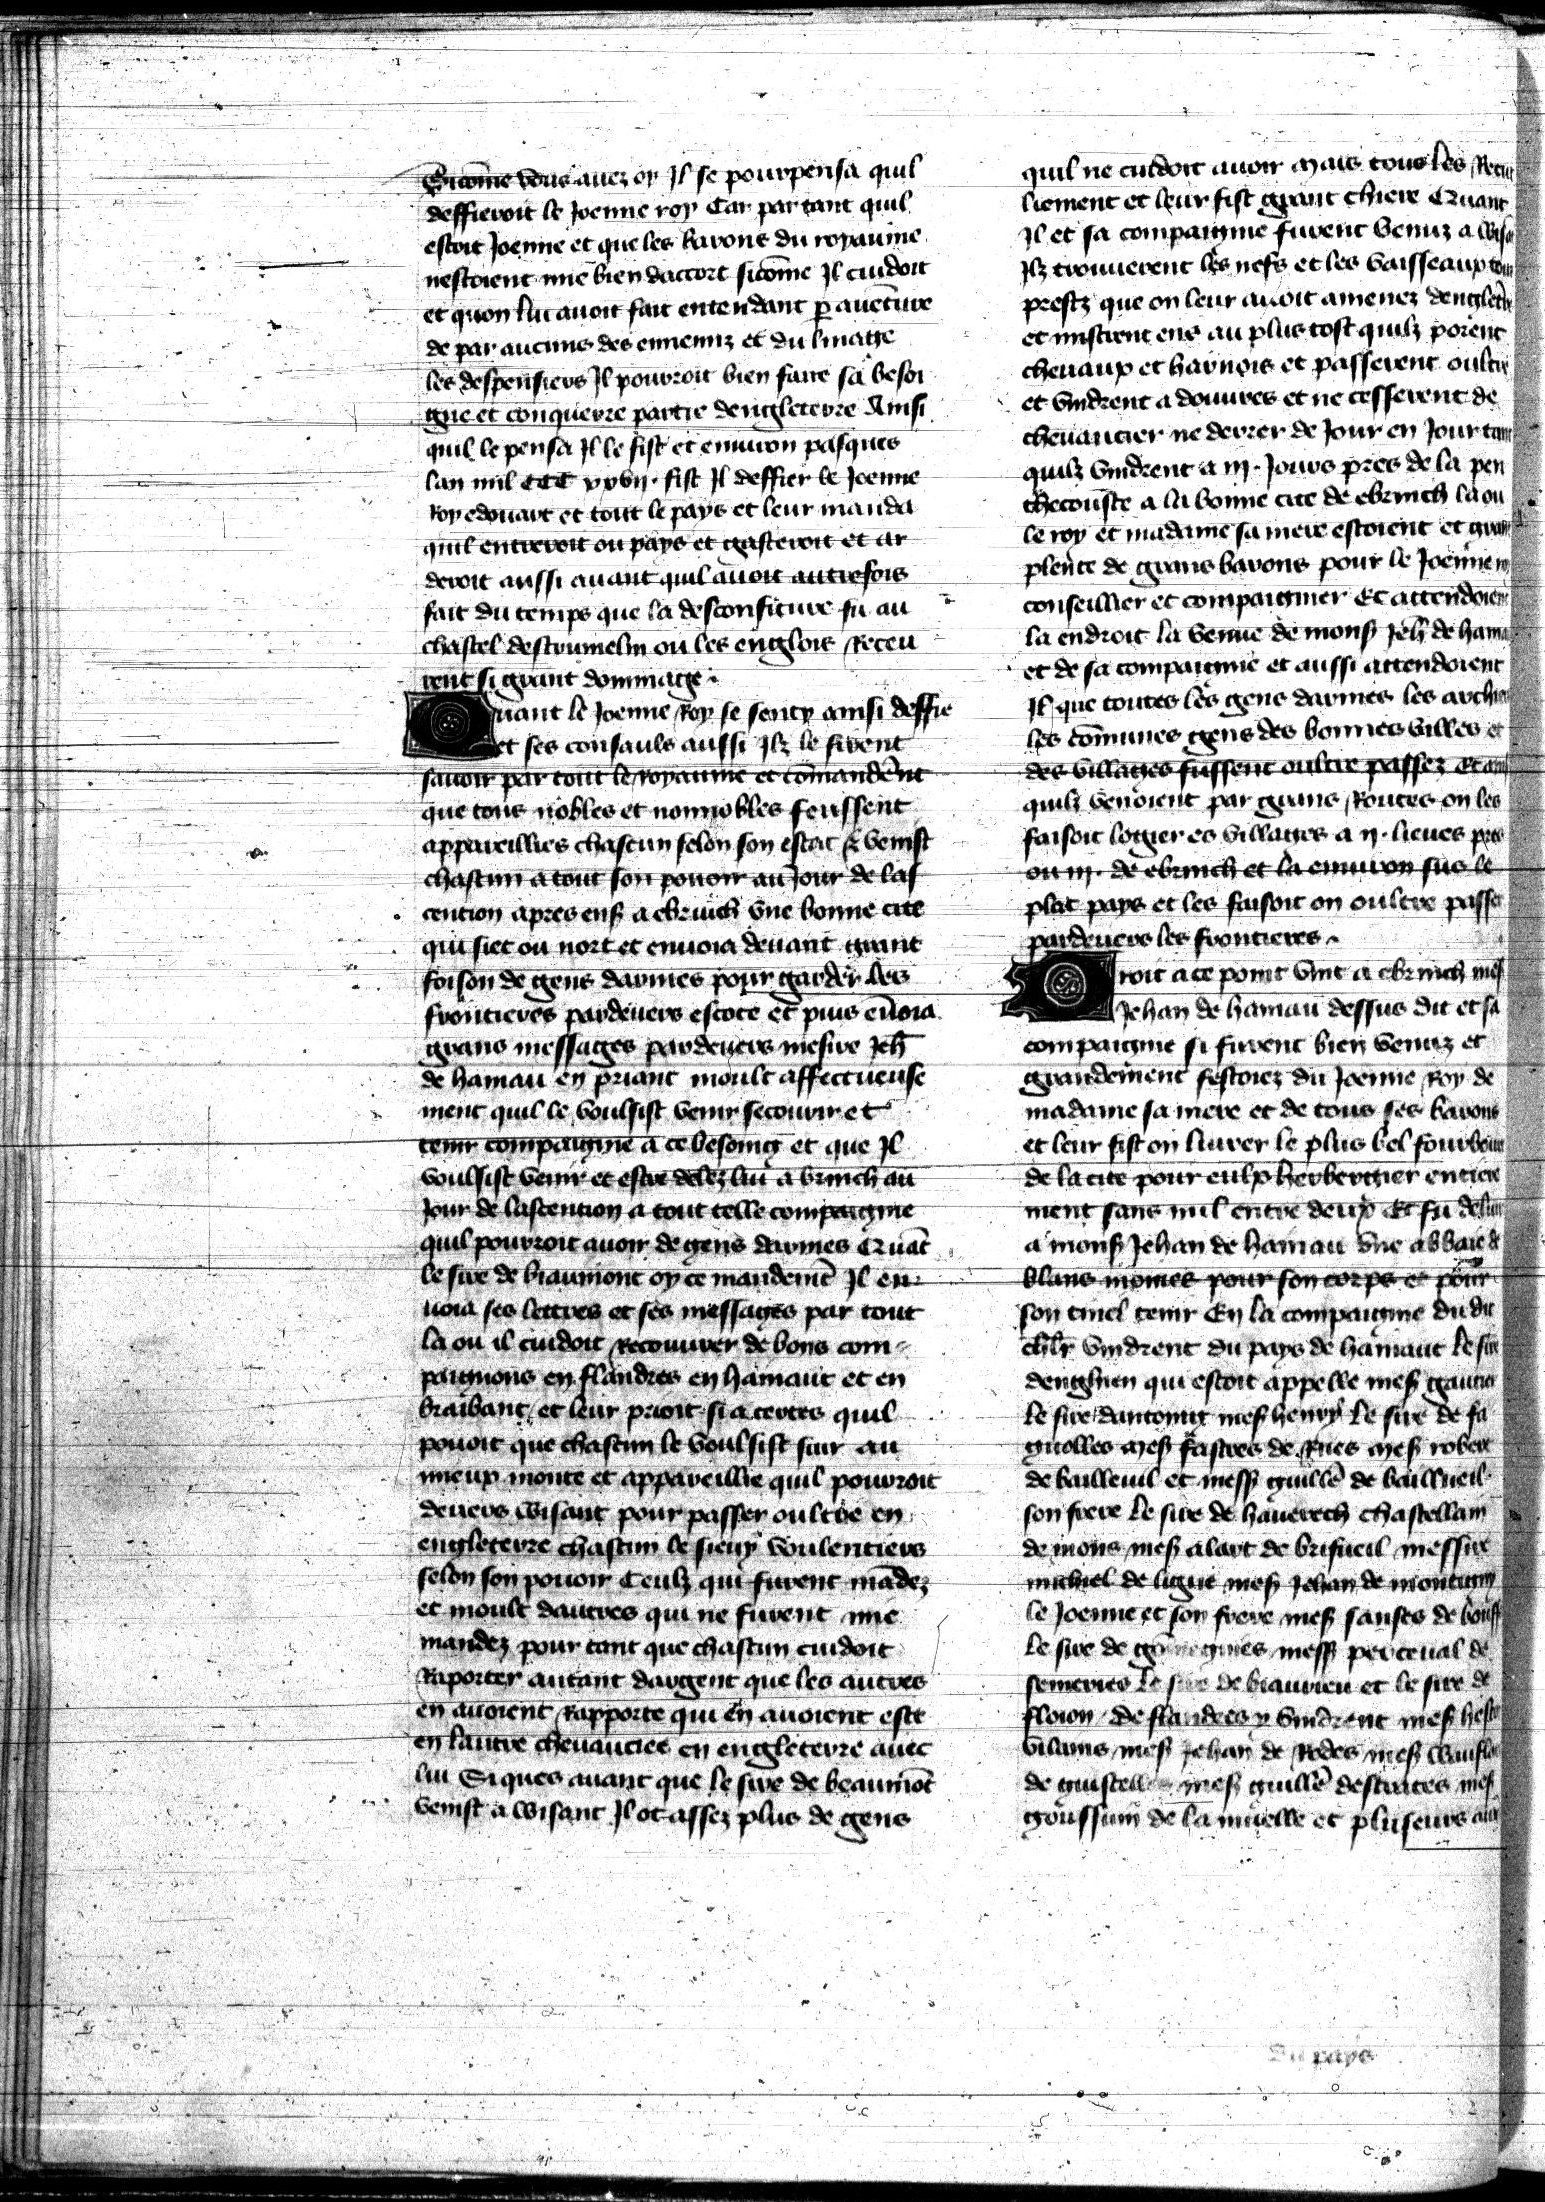 Sicōme vous avez oy Il se pourpensa quil
deffieroit le Joenne roy Car par tant quil
estoit Joenne et que les barons du royaume
nestoient mie bien daccort sicōme Il cuidoit
et quon lui avoit fait entendant p̄ avēture
de par aucuns des ennemiz et du linage
les despensiers Il pourroit bien faire sa besoi
gne et conquerre partie dengleterre Ainsi
quil le pensa Il le fist et environ pasques
lan mil CCC xxvij. fist Il deffier le Joenne
Roy edouart et tout le pays et leur manda
quil entreroit ou pays et gasteroit et ar
deroit aussi avant quil avoit autrefois
fait du temps que la desconfiture fu au
chastel destrumelin ou les englois Receu
rent si grant dommage.
Quant le Joenne Roy se senty ainsi deffie
et ses consaulx aussi Ilz le firent
savoir par tout le royaume et cōmandēnt
que tous nobles et nonnobles feussent
appareillies chascun selon son estat & venist
chascun a tout son povoir au Jour de las
cention apres enß a ebruich une bonne cite
qui siet ou nort et envoia devant grant
foison de gens darmes pour garder les
frontieres pardevers escoce et puis ēvoia
grans messages pardevers mesire Jeh̄
de hainau en priant moult affectueuse
ment quil le voulsist venir secourir et
tenir compaignie a ce besoing et que Il
voulsist venir et estre delez lui a bruich au
Jour de lascention a tout telle compaignie
quil pourroit avoir de gens darmes Quāt
le sire de biaumont oy ce mandemēt Il en
voia ses lettres et ses messages par tout
la ou il cuidoit Recouvrer de bons com-
paignons en flandres en hainaut et en
braibant et leur prioit si a certes quil
povoit que chascun le voulsist suir au
mieux monte et appareillie quil pourroit
devers wisant pour passer oultre en
engleterre chascun le sieuy voulentiers
selon son povoir Ceulz qui furent mādez
et moult dautres qui ne furent mie
mandez pour tant que chascun cuidoit
Raporter autant dargent que les autres
en avoient Rapporte qui en avoient este
en lautre chevauciee en engleterre avec
lui Siques avant que le sire de beaumōt
venist a wisant Il ot assez plus de gens
quil ne cuidoit avoir Mais tous les Recui
liement et leur fist grant chiere Quant
Il et sa compaignie furent venuz a wisa
Ilz trouverent les nefs et les vaisseaux tou
prestz que on leur avoit amenez dengletr̄e
et mistrent ens au plus tost quilz porent
chevaux et harnois et passerent oultre
et vindrent a douvres et ne cesserent de
chevaucier ne derrer de Jour en Jour tant
quilz vindrent a iij. Jours pres de la pen
thecouste a la bonne cite de ebruich la ou
le roy et madame sa mere estoient et grant
plente de grans barons pour le Joenne roy
conseillier et compaignier Et attendoient
la endroit la venue de monß Jeh̄ de haina
et de sa compaignie et aussi attendoient
Il que toutes les gens darmes les archie
les cōmunes gens des bonnes villes et
des villages fussent oultre passez Et ainsi
quilz venoient par grans Routes on les
faisoit logier es villages a ij. lieues pres
ou iij. de ebruich et la environ sus le
plat pays et les faisoit on oultre passer
pardevers les frontieres.
Droit a ce point vint a ebruich meß
Jehan de hainau dessus dit et sa
compaignie si furent bien venuz et
grandement festoiez du Joenne Roy de
madame sa mere et de tous ses barons
et leur fist on livrer le plus bel fourbourc
de la cite pour eulx herbergier entiere
ment sans nul entre deux Et fu delivr
a monß Jehan de hainau une abbaie de
blans moines pour son corps et pour
son tinel tenir En la compaignie du dit
chlr̄ vindrent du pays de hainaut le sire
denghien qui estoit appelle meß gautier
le sire dantoing meß henry le sire de fa
gnolles Meß fastres de Rues Meß robert
de bailleuil et messß guillē de baillueil
son frere le sire de haverech chastellain
de mons meß alart de brifueil messire
michiel de ligne meß Jehan de montigny
le Joenne et son frere meß sanses de bouss
le sire de gōmegnies messß perceval de
semeries le sire de biaurieu et le sire de
floion De flandres y vindrent meß hector
vilains meß Jehan de Rodes meß waufla
de guistelle meß guillē destrates meß
goussuin de la muelle et pluseurs aut
Du pays